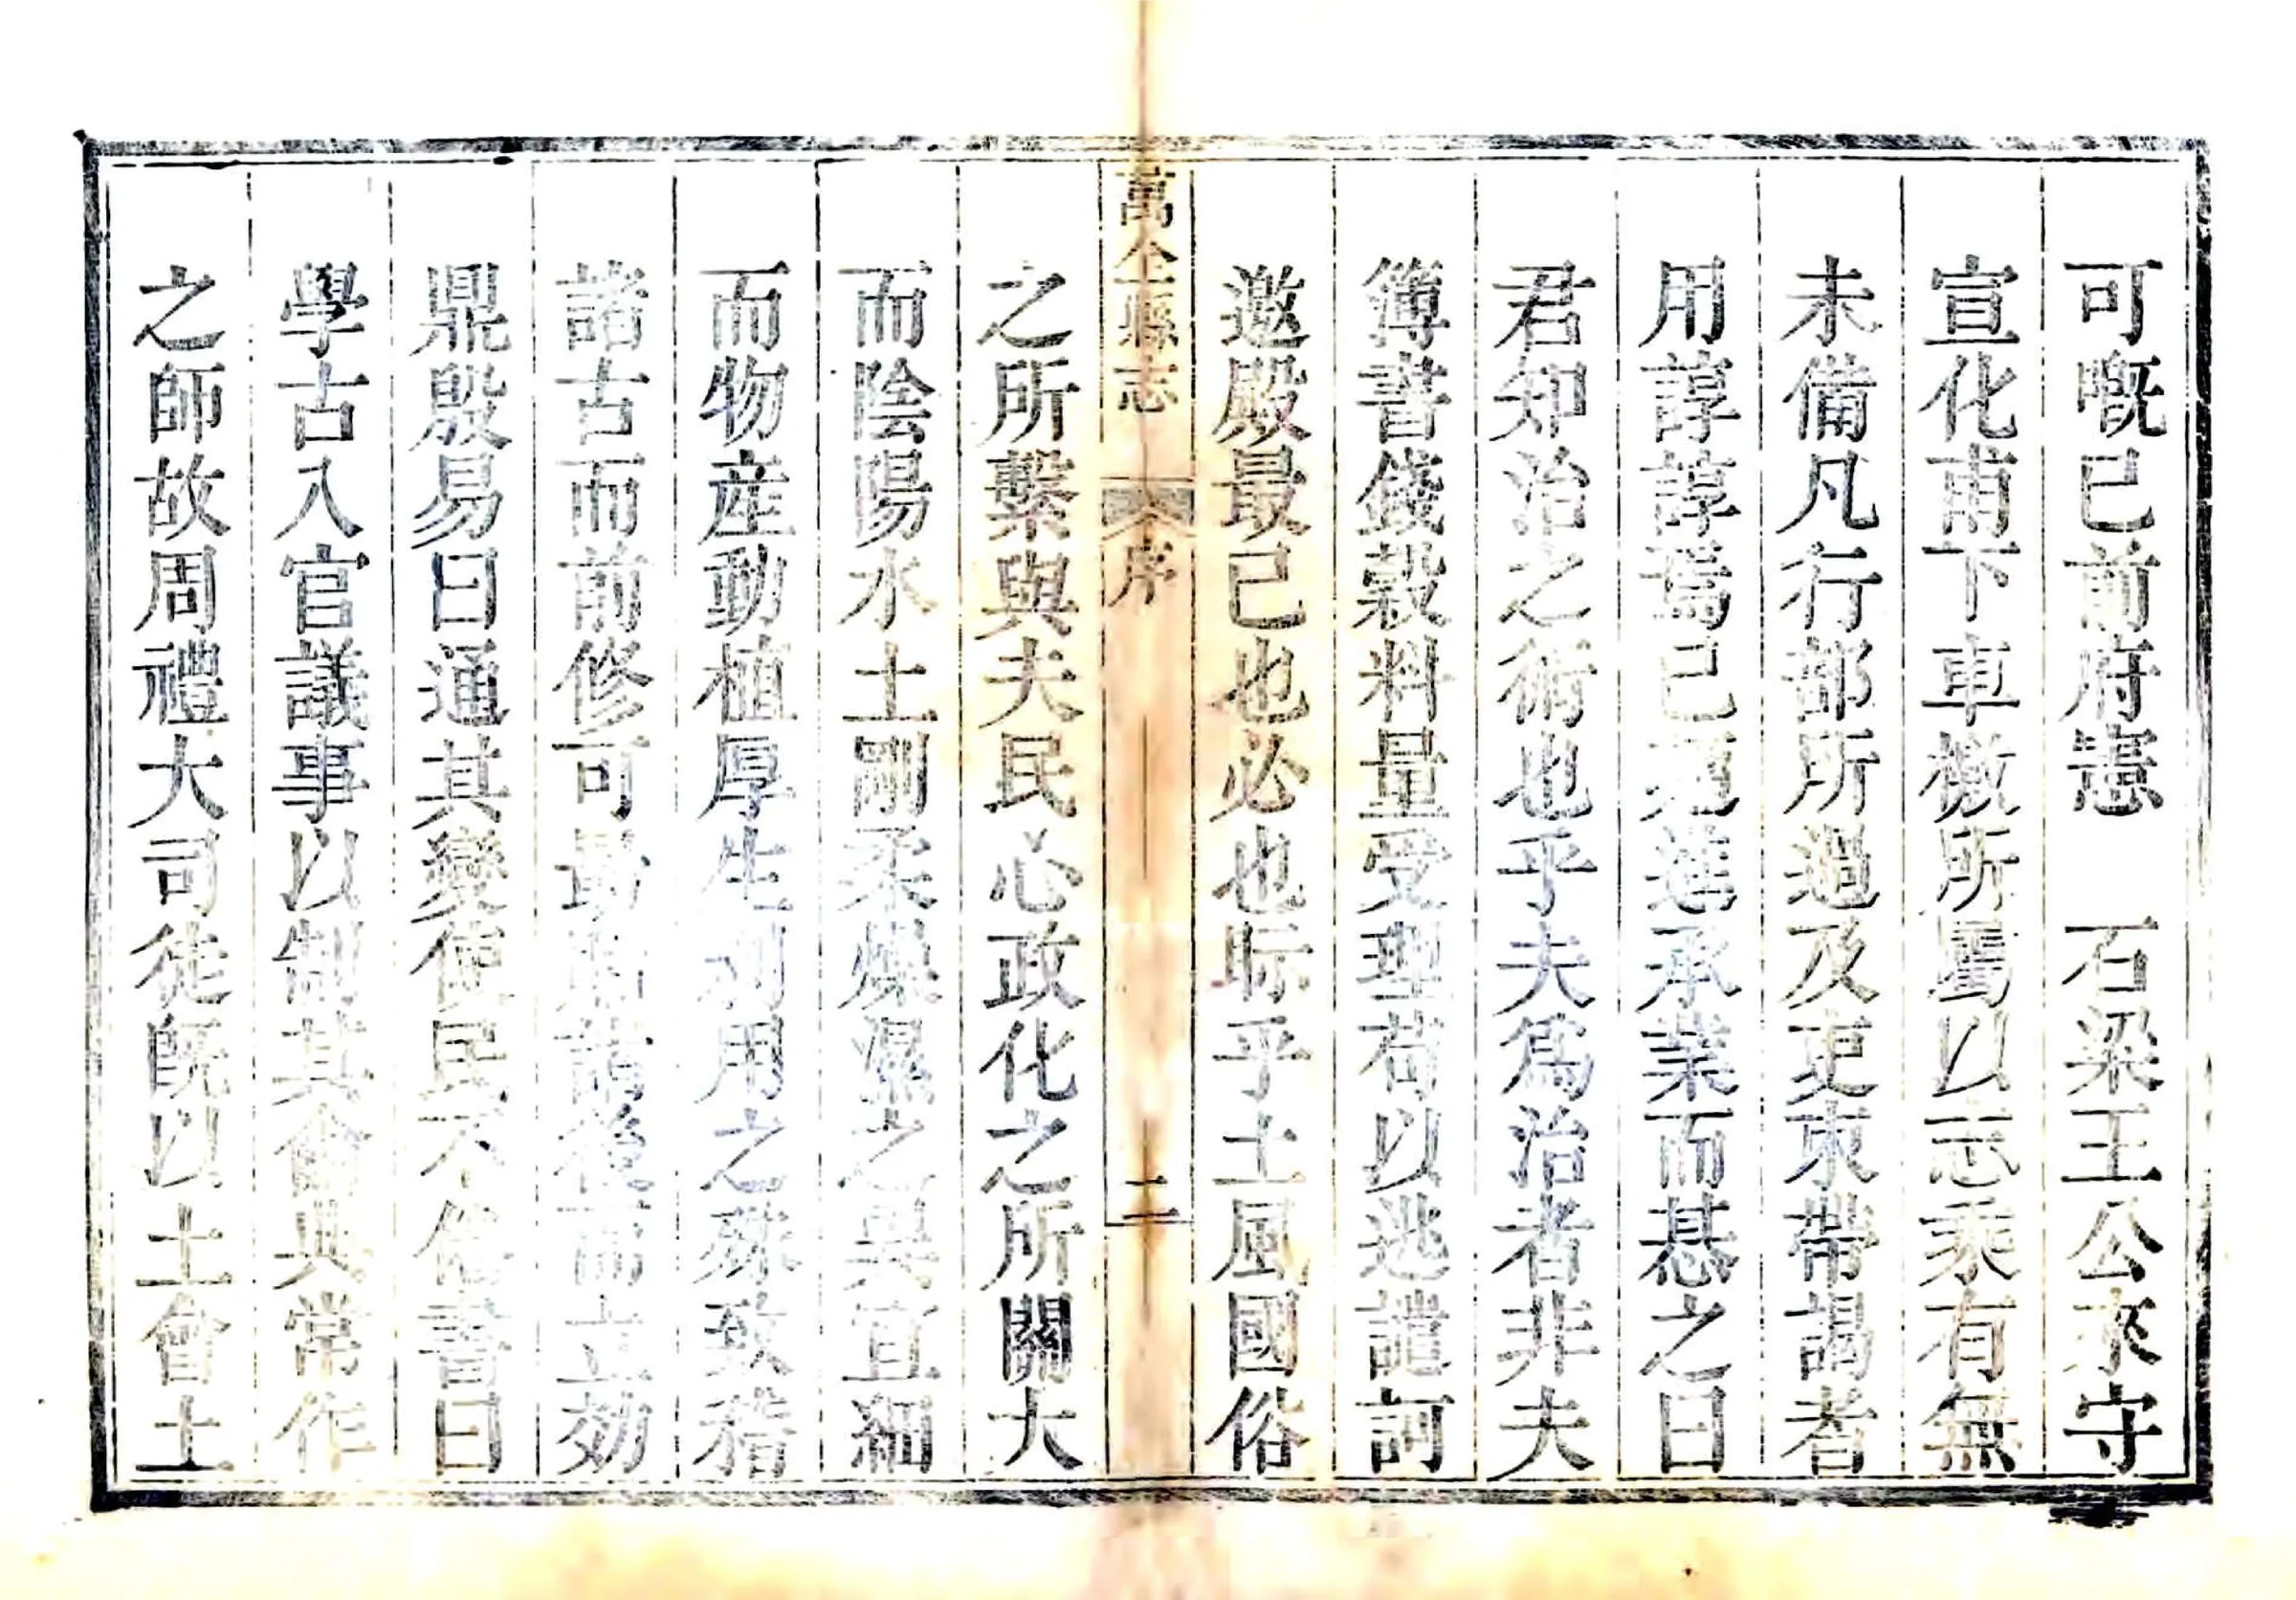 可嘅已前府憲　石梁王公來守
宣化甫下車檄所屬以志乘有無
未備凡行部所過及吏束帶謁者
用諄諄焉已更進承業而惎之曰
君知治之術也乎夫爲治者非夫
簿書錢穀料量受理苟以逃譴訶
邀殿最已也必也眎乎土風國俗
萬全縣志　序　二
之所繫與夫民心政化之所關大
而陰陽水土剛柔燥濕之異宜細
而物産動植厚生利用之殊致稽
諸古而前修可勗詒後而立效
鼎殷易曰通其變使民不倦書曰
學古入官議事以制其爾典常作
之師故周禮大司徒旣以土會土